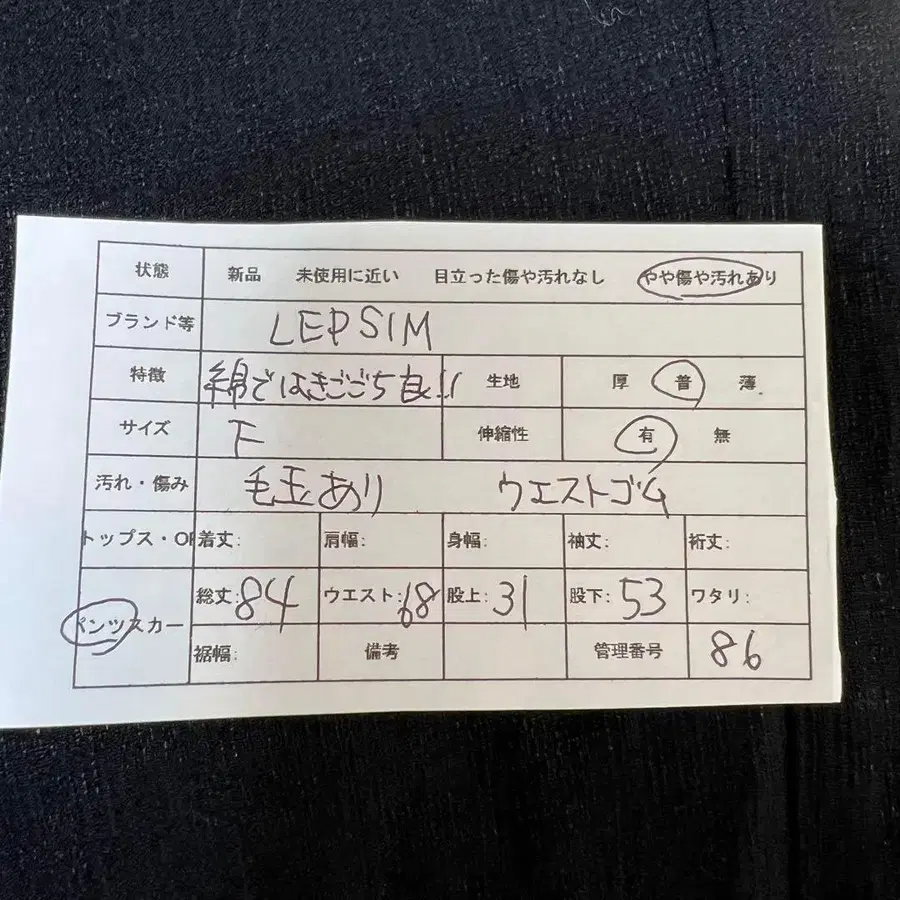 状態 新品 未使用に近い 目立った傷や汚れなし やや傷や汚れあり
ブランド等 LEPSIM
特徴 綿ではきごごち良!! 生地 厚 普 薄
サイズ F 伸縮性 有 無
汚れ・傷み 毛玉あり ウエストゴム
トップス・OP 着丈: 肩幅: 身幅: 袖丈: 裄丈:
パンツスカー 総丈:84 ウエスト:68 股上:31 股下:53 ワタリ:
裾幅: 備考 管理番号 86